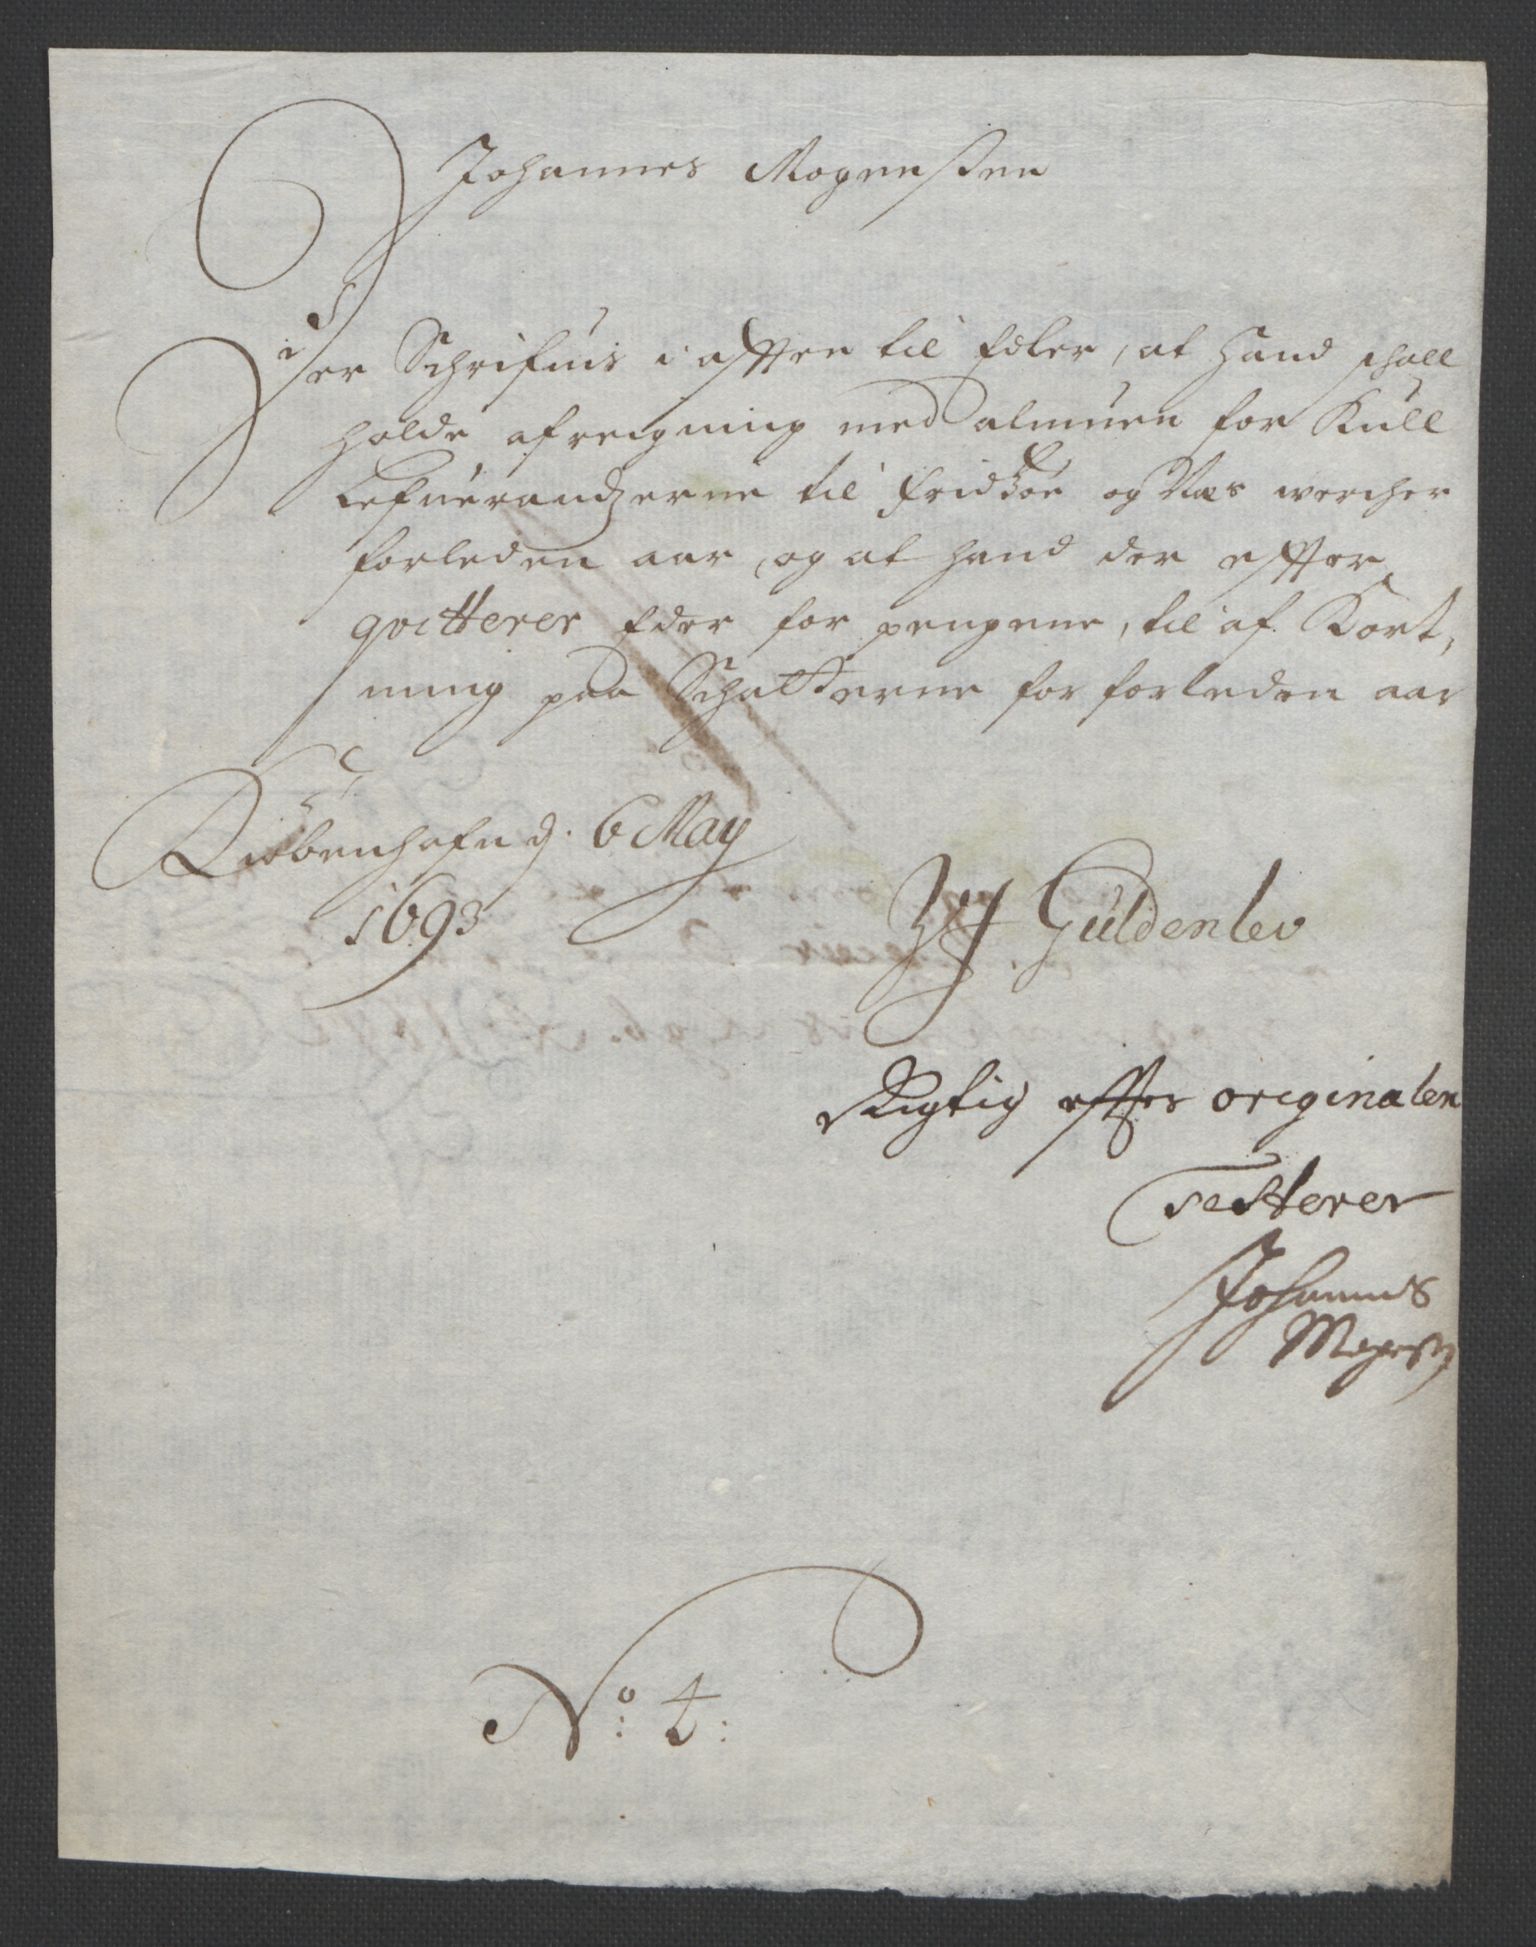 Johannes Mogensen
Der Schrifuis i aften til Eder, at Hand schall
holde afreigning med almuen for Kull
Lefuerandzerne til Fridzøe og Næs wercher
forleden aar, og at hand der effter
qvitterer Eder for pengene, til af Kort,
ning paa Schatterne for forleden aar
Kiøbenhafn d. 6 May
1693
Guldenlev
Rigtig effter originalen
Testerer
Johannes
No: 4: